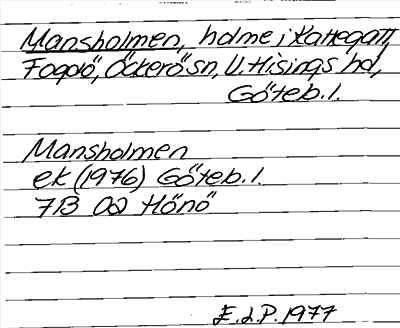 Mansholmen, holme i Kattegatt,
Fogdö, Öckerö sn, V. Hisings hd,
Göteb. l.
Mansholmen
ek (1976) Göteb. l.
7B 0a Hönö
E. J. P. 1977